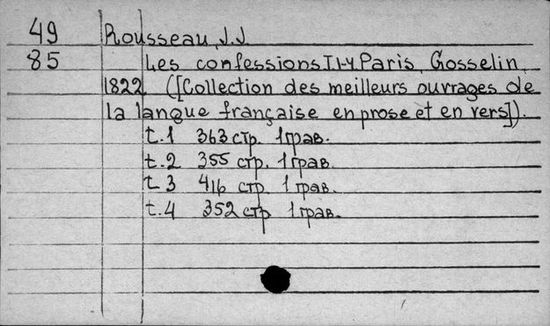 49 Rousseau, J.J
85 Les confessions T.1-4 Paris, Gosselin,
1822. ([Collection des meilleurs ouvrages de
la langue française en prose et en vers]).
t.1 363 стр. 1 грав.
t.2 355 стр. 1 грав.
t 3 416 стр. 1 грав.
t.4 352 стр 1 грав.